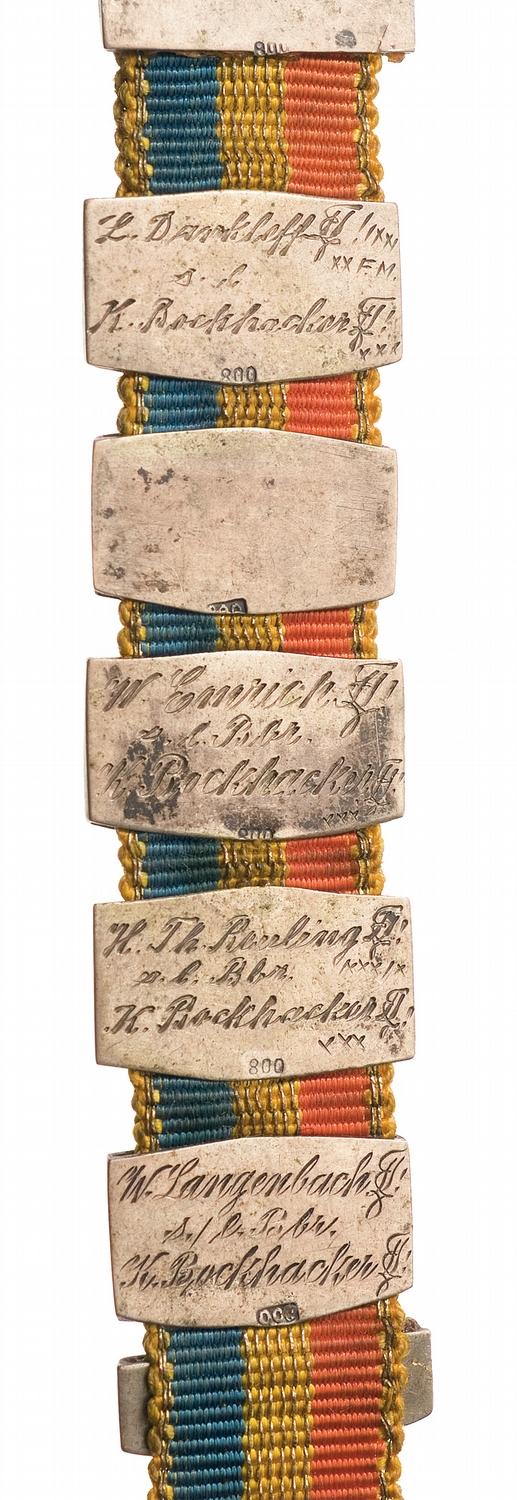 800
L. Dankleff ! xx
xx F.M.
s. l.
K. Bockhacker !
xxx
800
800
W. Emrich !
s. l. Bbr.
K. Bockhacker !
xxx
800
H. Th. Reuling !
s. l. Bbr. xxxix
K. Bockhacker !
xxx
800
W. Langenbach !
s./l. Bbr.
K. Bockhacker !
800